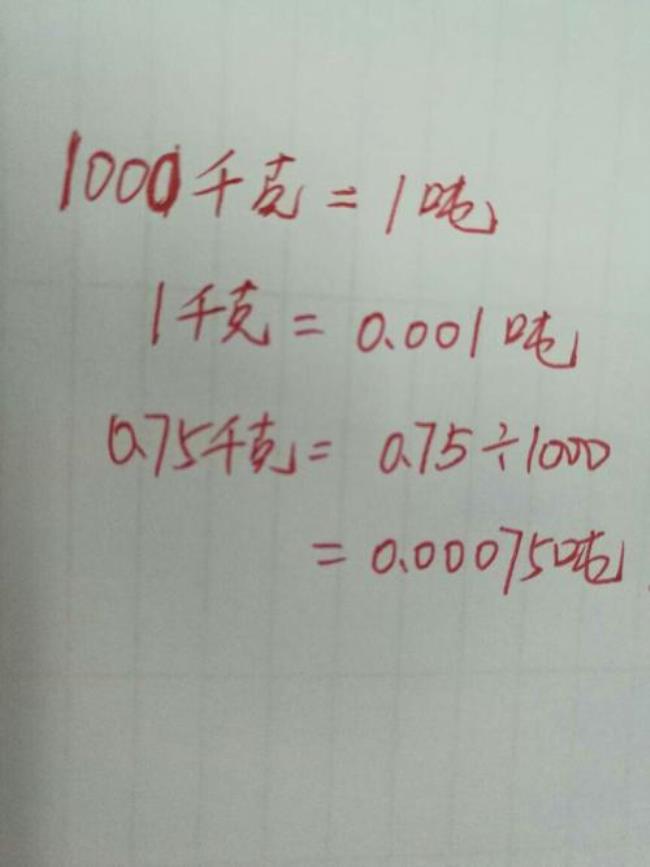 1000千克=1吨
1千克=0.001吨
0.75千克=0.75÷1000
=0.00075吨